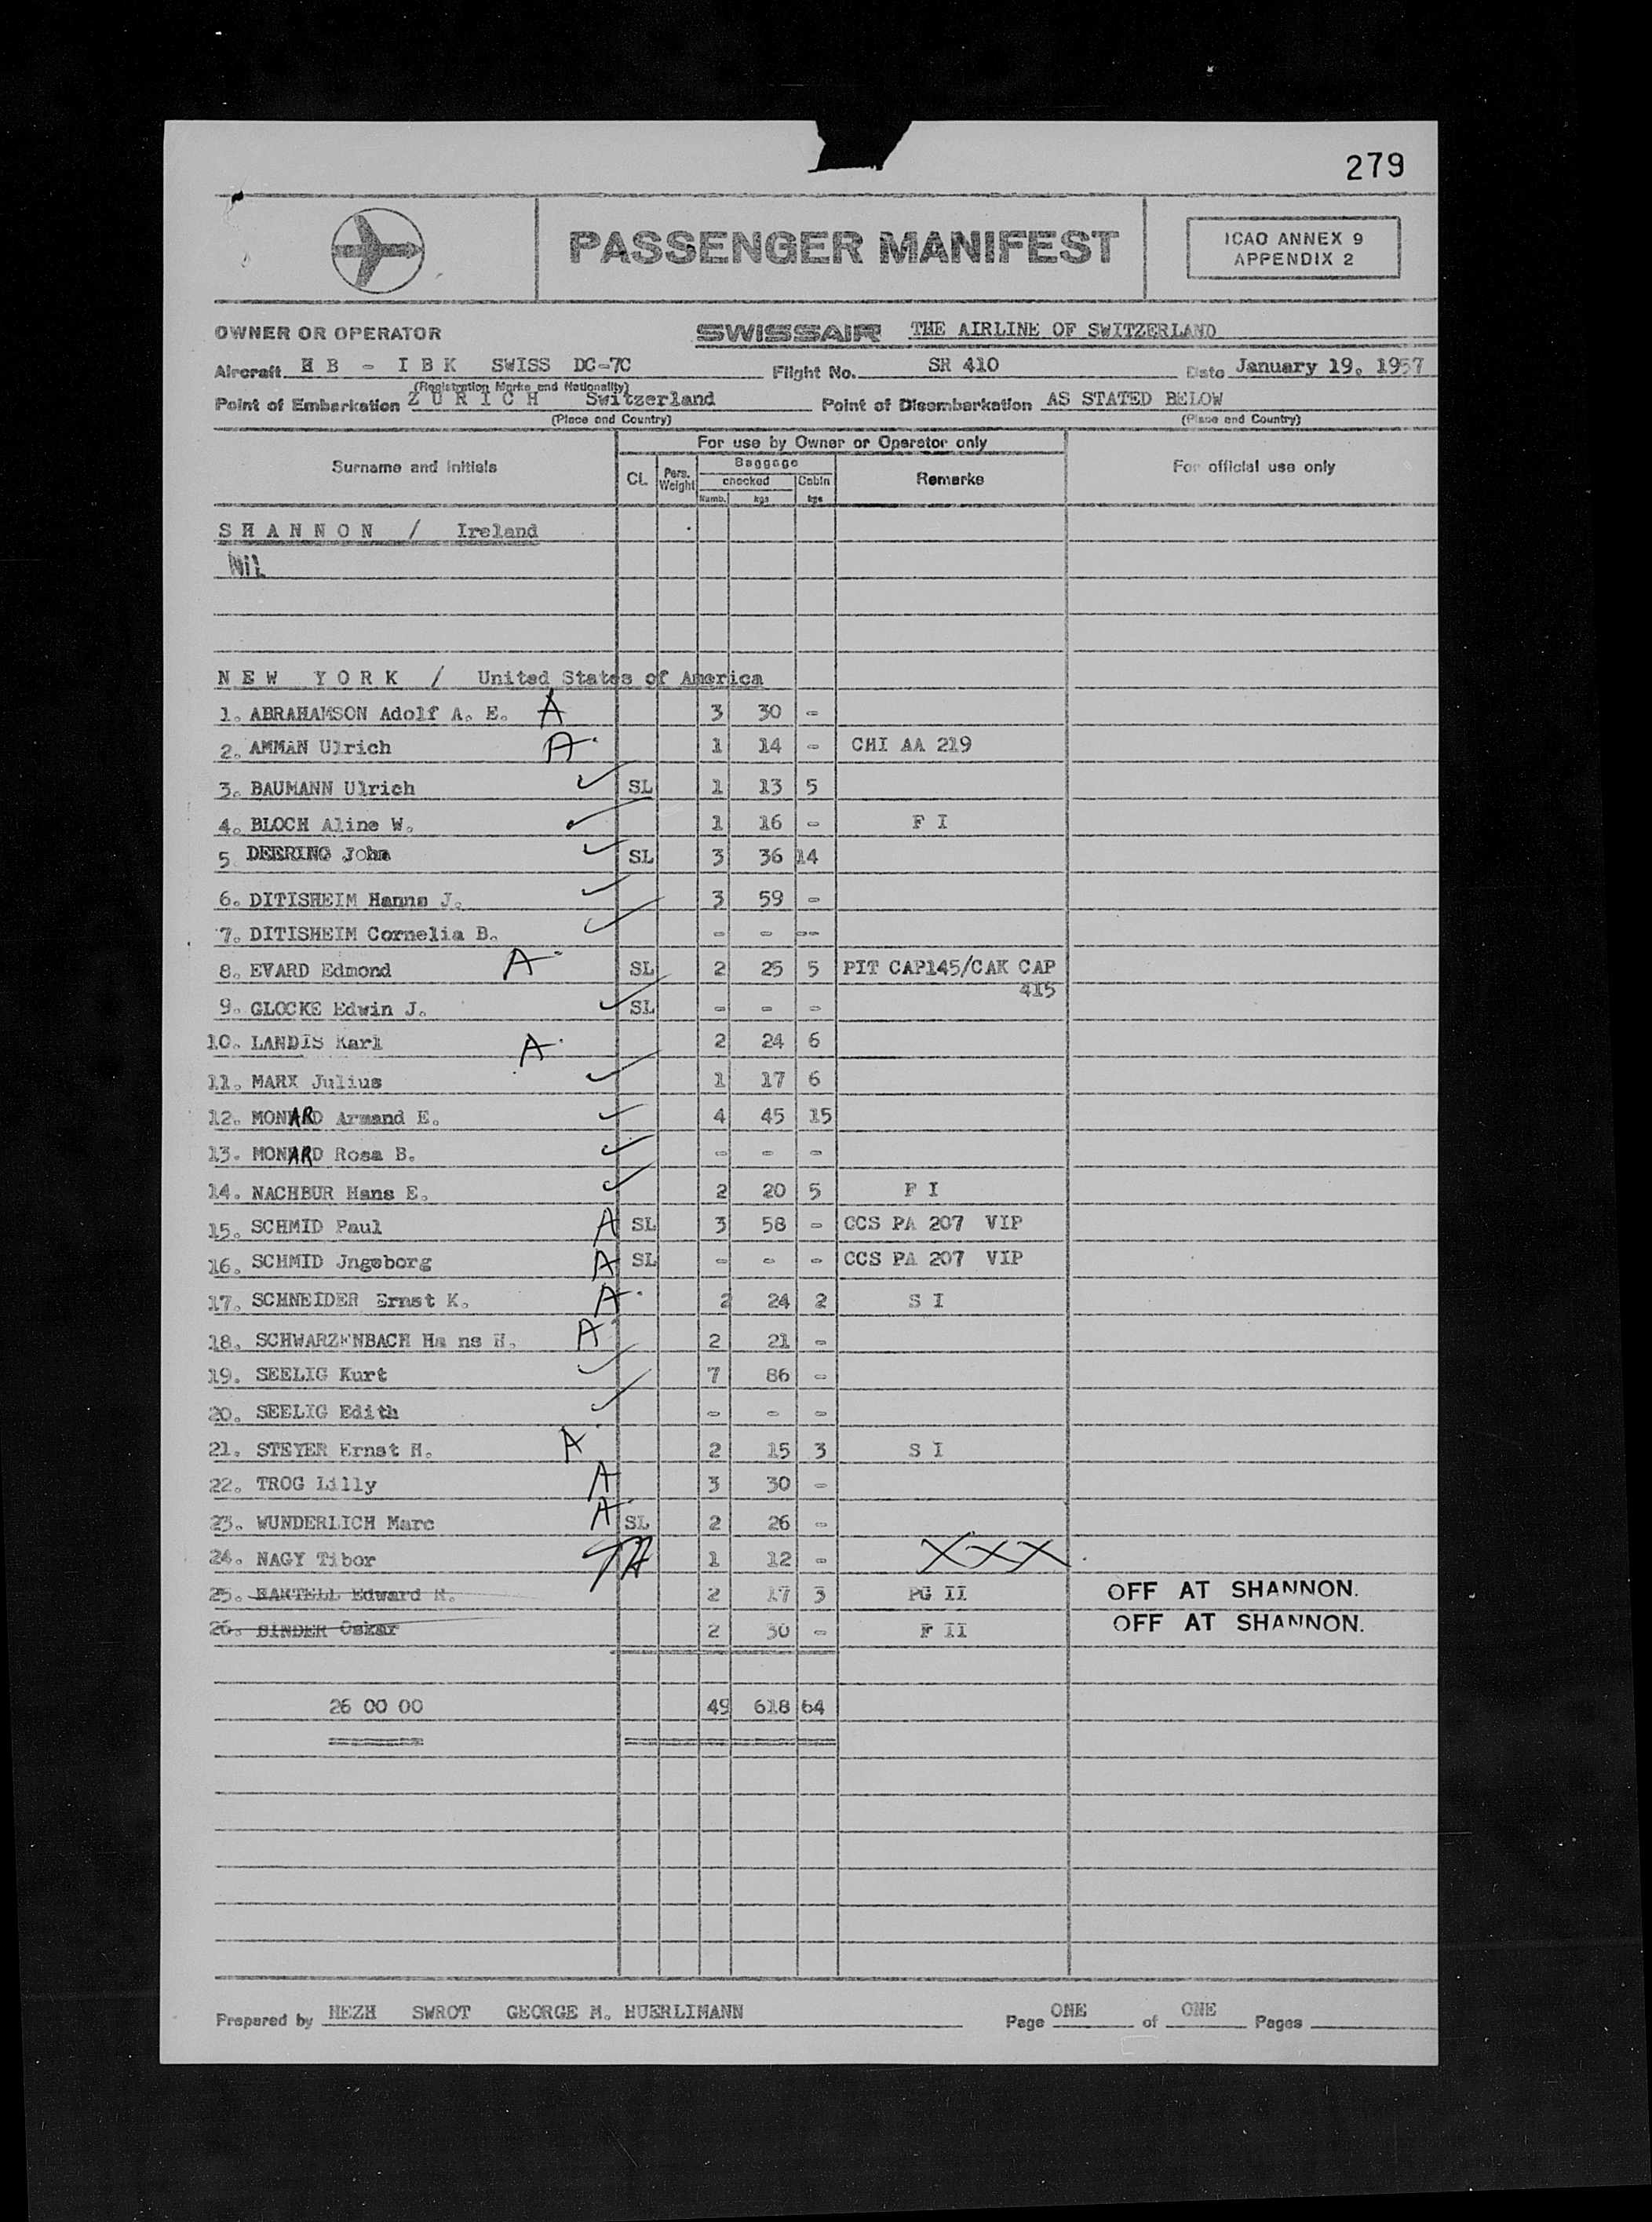 279
PASSENGER MANIFEST
ICAO ANNEX 9
APPENDIX 2
OWNER OR OPERATOR SWISSAIR THE AIRLINE OF SWITZERLAND
Aircraft H B - I B K SWISS DC-7C Flight No. SR 410 Date January 19, 1957
(Registration Marks and Nationality)
Point of Embarkation Z U R I C H Switzerland Point of Disembarkation AS STATED BELOW
(Place and Country) (Place and Country)
For use by Owner or Operator only
Surname and Initials Cl. Pers. Weight Baggage checked Numb. kgs Cabin kgs Remarks For official use only
S H A N N O N / Ireland
Nil
N E W Y O R K / United States of America
1. ABRAHAMSON Adolf A. E. A 3 30 -
2. AMMAN Ulrich A 1 14 - CHI AA 219
3. BAUMANN Ulrich SL 1 13 5
4. BLOCH Aline W. 1 16 - F I
5 DEERING John SL 3 36 14
6. DITISHEIM Hanns J. 3 59 -
7. DITISHEIM Cornelia B. - - --
8. EVARD Edmond A SL 2 25 5 PIT CAP145/CAK CAP
415
9. GLOCKE Edwin J. SL - - -
10. LANDIS Karl A 2 24 6
11. MARX Julius 1 17 6
12. MONARD Armand E. 4 45 15
13. MONARD Rosa B. - - -
14. NACHBUR Hans E. 2 20 5 F I
15. SCHMID Paul A SL 3 58 - CCS PA 207 VIP
16. SCHMID Jngeborg A SL - - - CCS PA 207 VIP
17. SCHNEIDER Ernst K. A 2 24 2 S I
18. SCHWARZENBACH Ha ns H. A 2 21 -
19. SEELIG Kurt 7 86 -
20. SEELIG Edith - - -
21. STEYER Ernst H. A 2 15 3 S I
22. TROG Lilly A 3 30 -
23. WUNDERLICH Marc A SL 2 26 -
24. NAGY Tibor 1 12 - XXX
25. BARTELL Edward R. 2 17 3 PG II OFF AT SHANNON.
26. BINDER Oskar 2 30 - F II OFF AT SHANNON.
26 00 00 49 618 64
Prepared by HEZH SWROT GEORGE M. HUERLIMANN Page ONE of ONE Pages